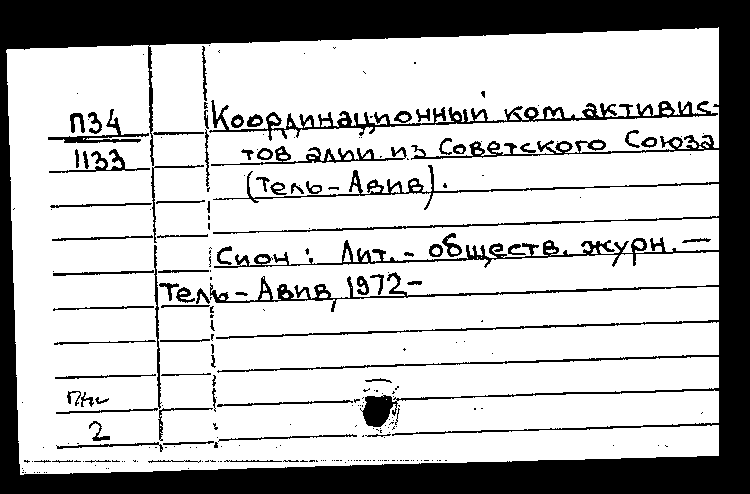 П34
1133
Координационный ком. активис-
тов алии из Советского Союза
(Тель-Авив).
Сион : Лит. - обществ. журн. —
Тель-Авив, 1972-
2